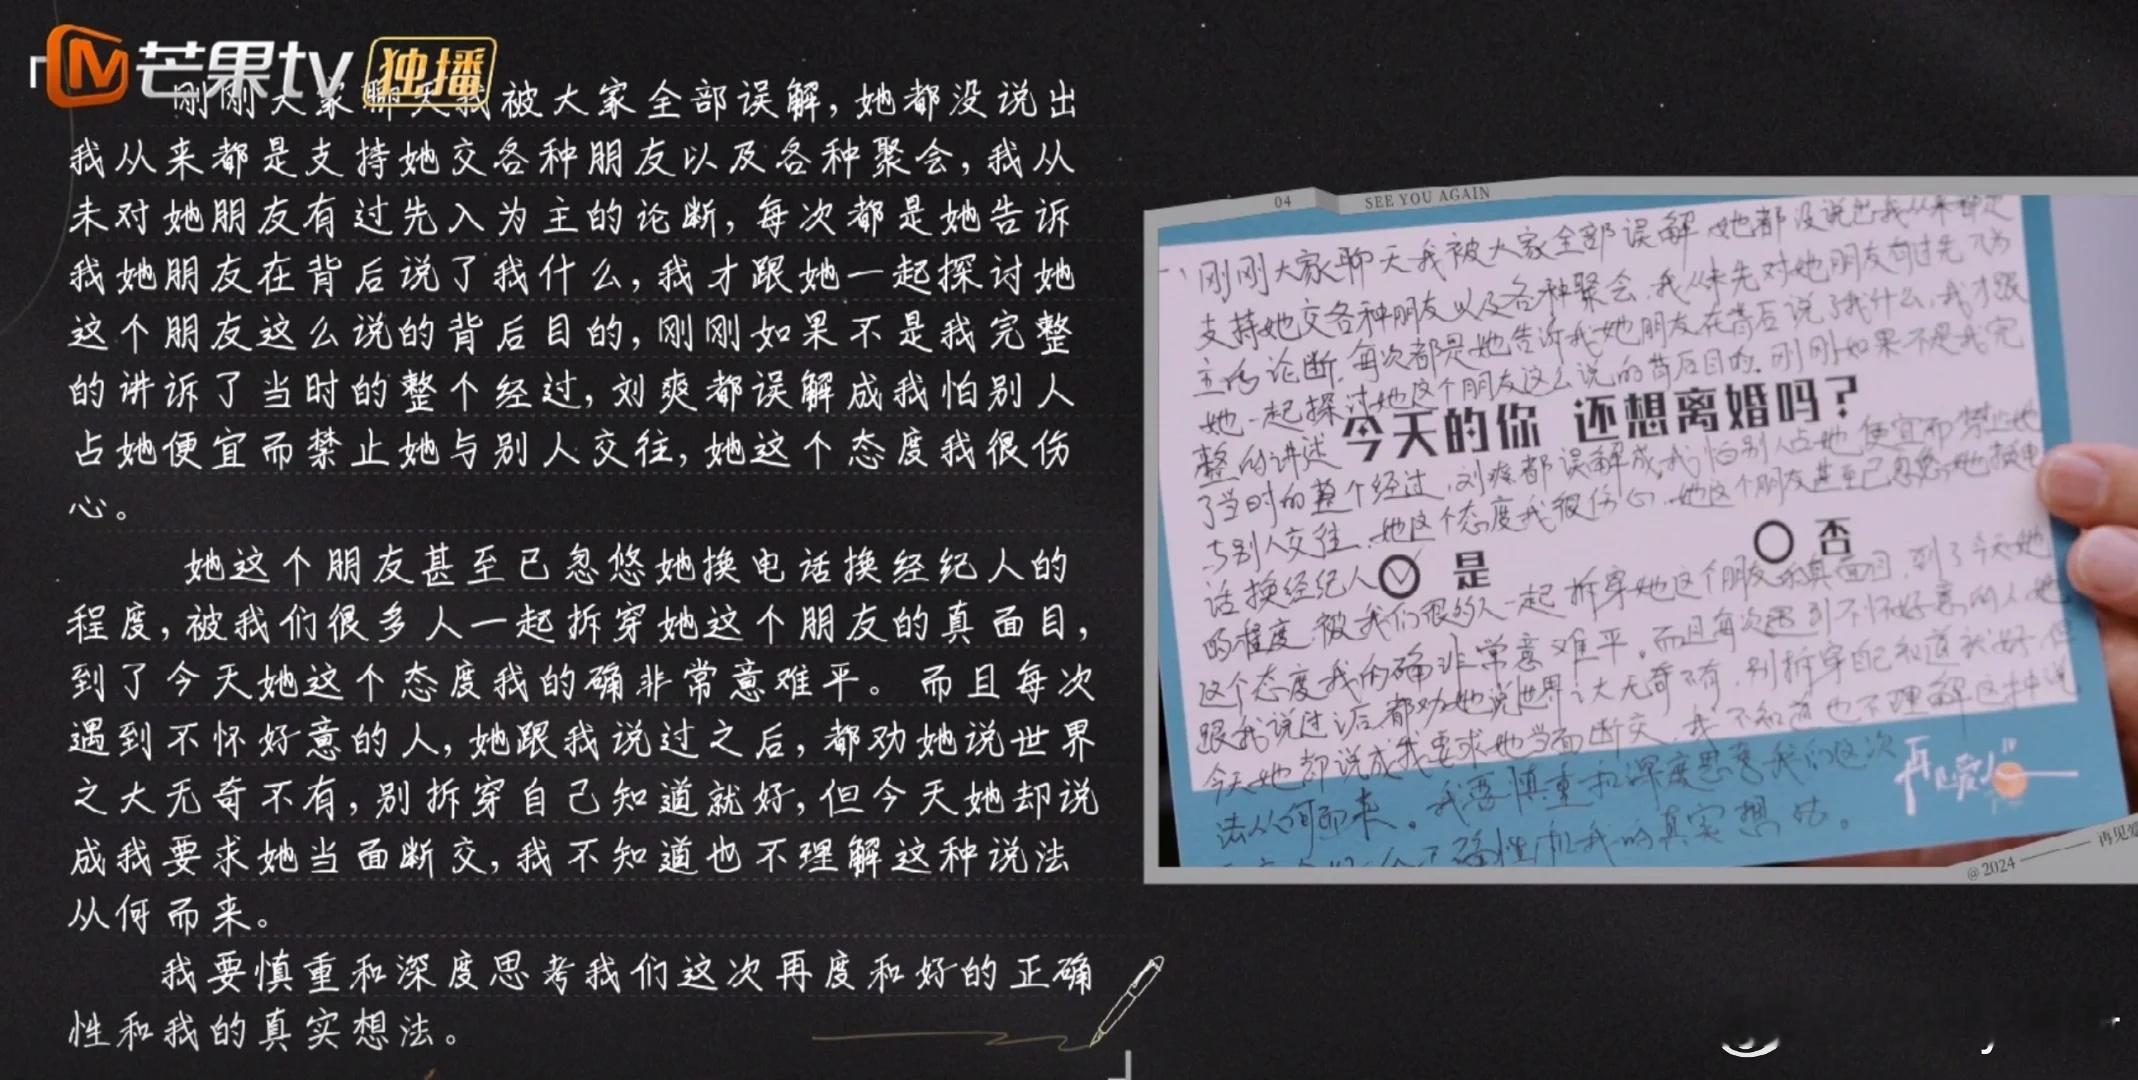 芒果tv 独播
刚刚大家聊天我被大家全部误解，她都没说出
我从来都是支持她交各种朋友以及各种聚会，我从
未对她朋友有过先入为主的论断，每次都是她告诉
我她朋友在背后说了我什么，我才跟她一起探讨她
这个朋友这么说的背后目的，刚刚如果不是我完整
的讲诉了当时的整个经过，刘爽都误解成我怕别人
占她便宜而禁止她与别人交往，她这个态度我很伤
心。
她这个朋友甚至已忽悠她换电话换经纪人的
程度，被我们很多人一起拆穿她这个朋友的真面目，
到了今天她这个态度我的确非常意难平。而且每次
遇到不怀好意的人，她跟我说过之后，都劝她说世界
之大无奇不有，别拆穿自己知道就好，但今天她却说
成我要求她当面断交，我不知道也不理解这种说法
从何而来。
我要慎重和深度思考我们这次再度和好的正确
性和我的真实想法。
04 SEE YOU AGAIN
刚刚大家聊天我被大家全部误解 她都没说出我从来都是
支持她交各种朋友以及各种聚会，我从未先对她朋友有过先入为
主的论断，每次都是她告诉我她朋友在背后说了我什么，我才跟
她一起探讨她这个朋友这么说的背后目的，刚刚如果不是我完
整的讲述
今天的你 还想离婚吗？
了当时的整个经过，刘爽都误解成我怕别人占她便宜而禁止她
与别人交往，她这个态度我很伤心，她这个朋友甚至已忽悠她换电
话换经纪人
是 否
的程度，被我们很多人一起拆穿她这个朋友的真面目，到了今天她
这个态度我的确非常意难平。而且每次遇到不怀好意的人她
跟我说过之后，都劝她说世界之大无奇不有，别拆穿自己知道就好 但
今天她却说成我要求她当面断交，我不知道也不理解这种说
法从何而来。我要慎重和深度思考我们这次
正确性和我的真实想法。
再见爱人
@2024 再见爱